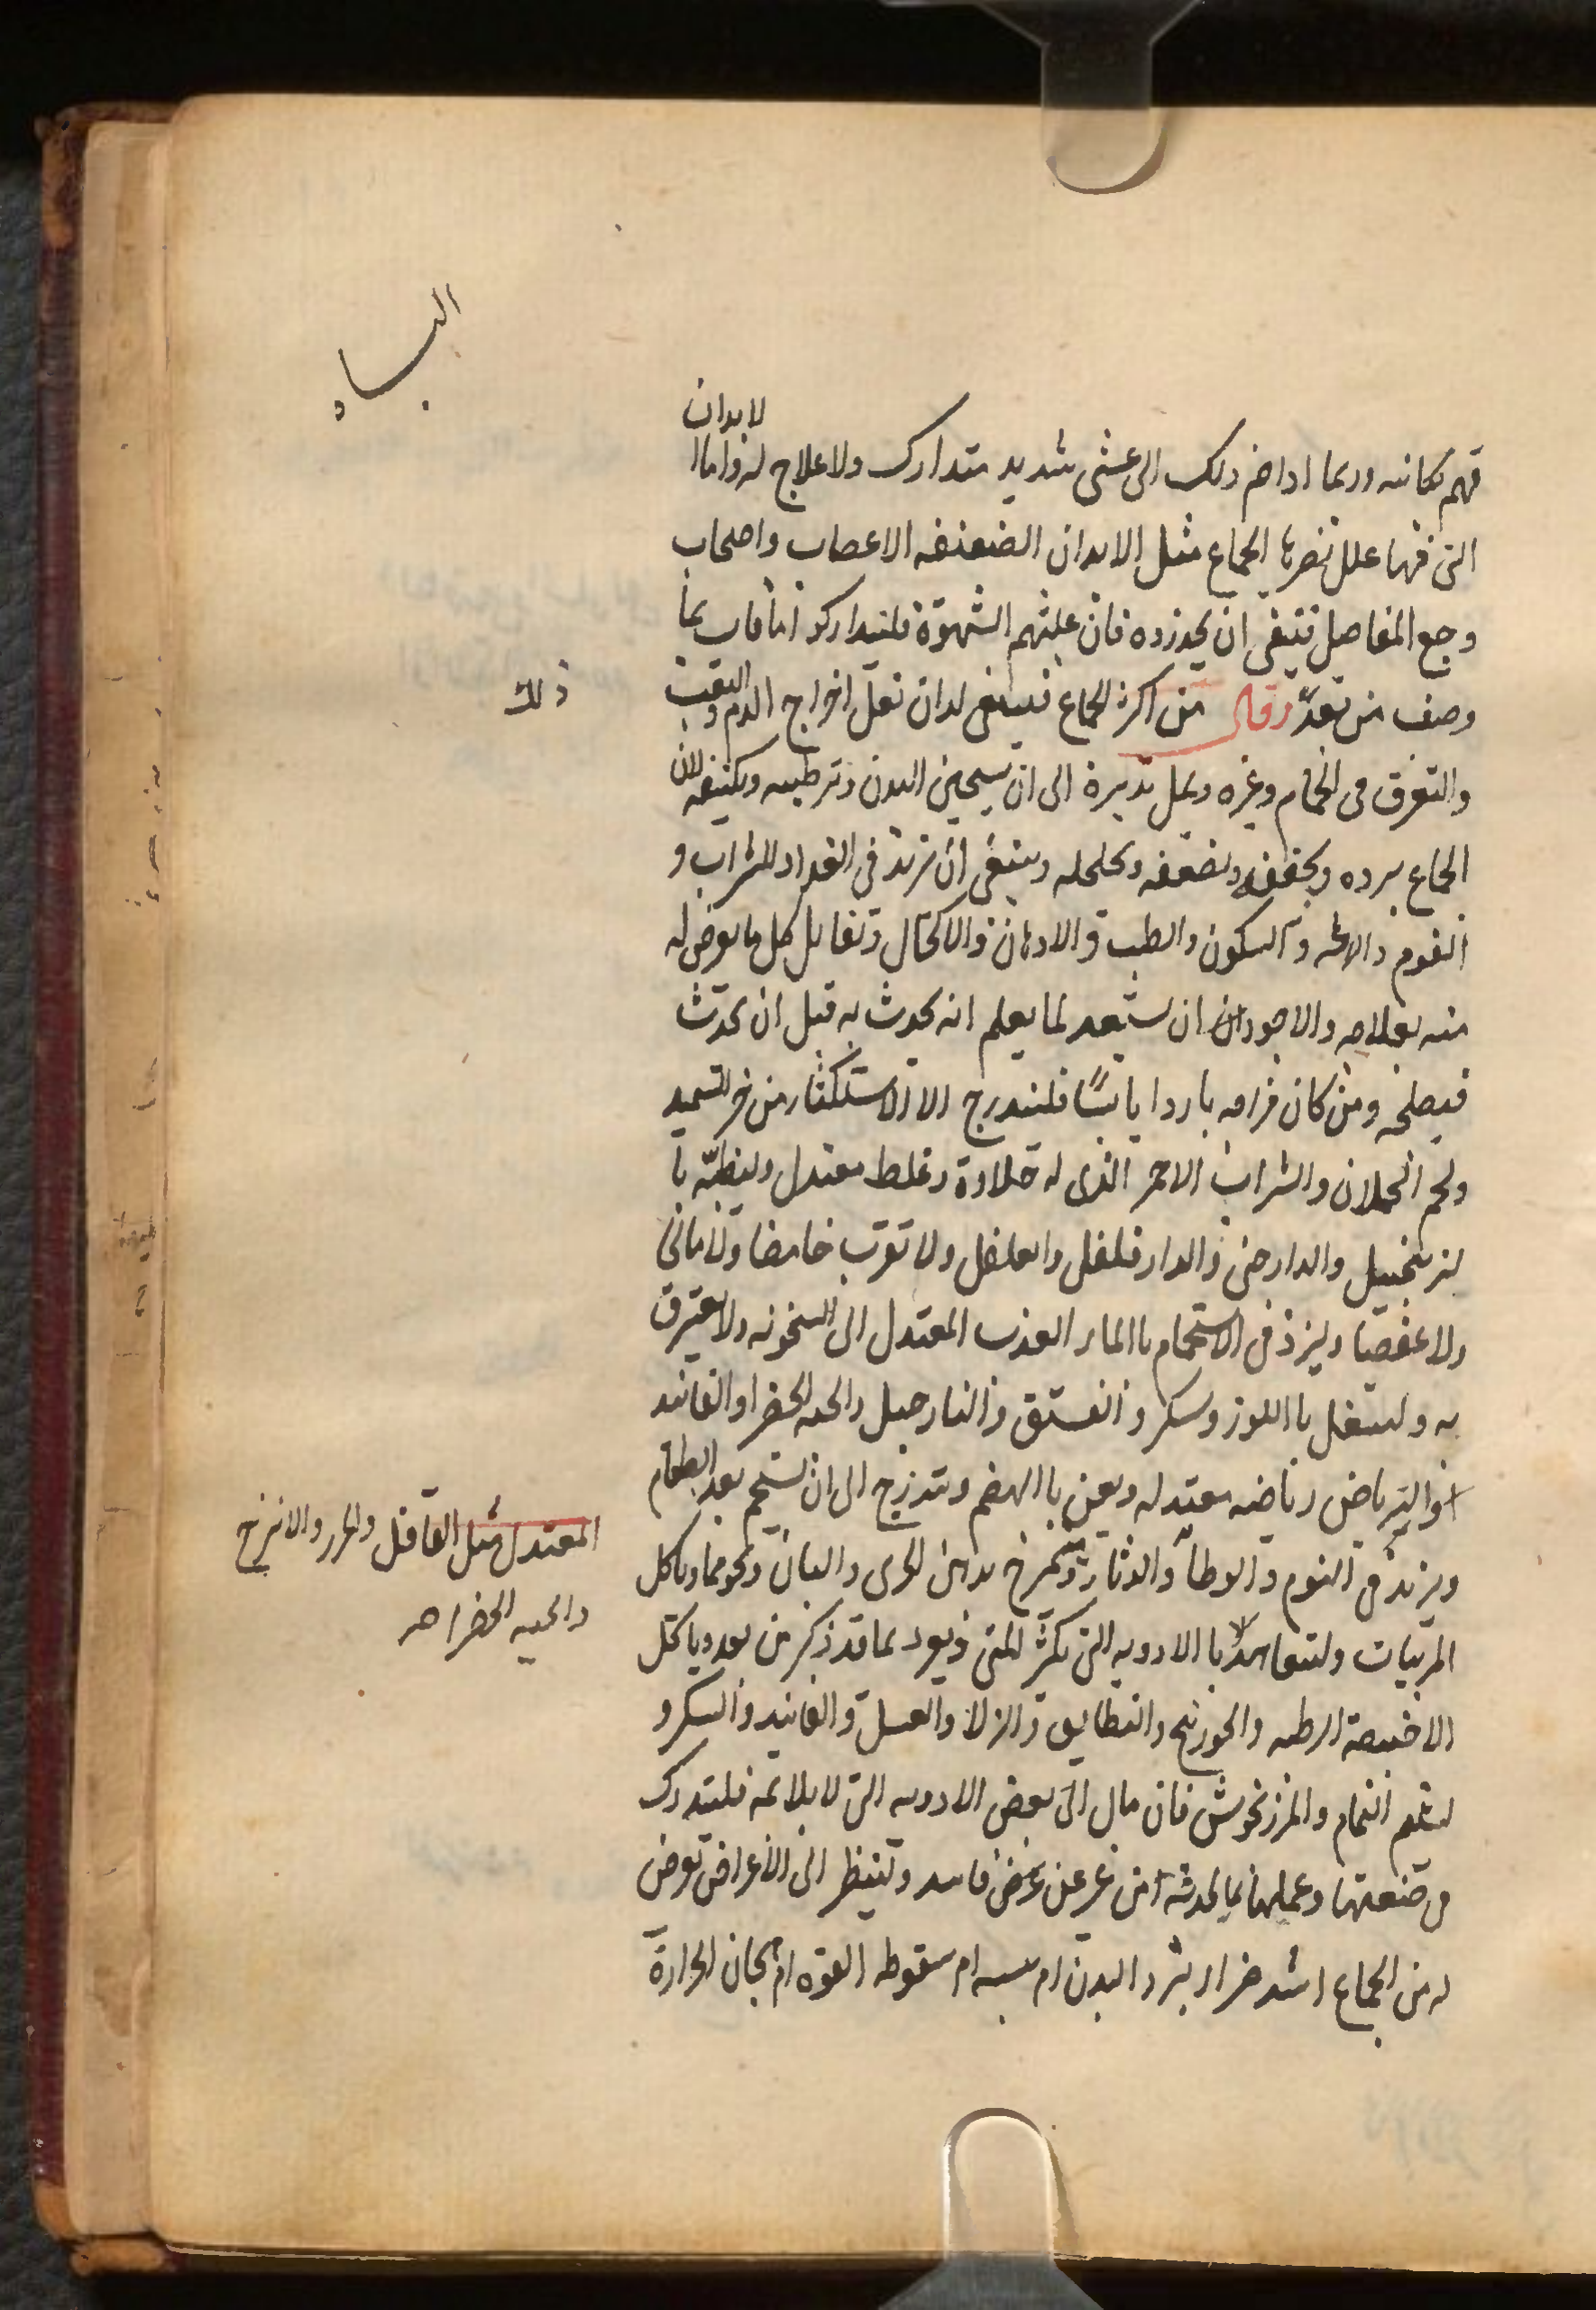 الباه
لابدان
فهم مكانه وربما اداهم ذلك الى غشى شديد متدارك ولا علاج له واما ا
التى فيها علل يضربها الجماع مثل الابدان الضعيفه الاعصاب واصحاب
وجع المفاصل فينبغى ان يحذروه فان غلبتهم الشهوة فليتداركوا بما
وصف من بعد وقال من اكثر الجماع فينبغى له ان يقل اخراج الدم والتعب
ذلك
والتعرق فى الحمام وغيره ويميل تدبيره الى ان تسخين البدن وترطيبه لان
الجماع يبرده ويجففه ويضعفه ويخلخله وينبغى ان يزيد فى الغذاء والشراب و
النوم والسكون والطيب والادهان والاكتحال وتقابل كل ما يعرض له
منه بعلاجه والاجود ان يستعد لما يعلم انه يحدث به قبل ان يحدث
فيصلحه ومن كان مزاجه باردا يابسًا فليتدرج الا الاستكثار من خبز السميد
ولحم الحملان والشراب الاحمر الذى له حلاوة وغلظ معتدل وليطيبه با
لزنجبيل والدارصينى والدارفلفل والفلفل ولا تقرب حامضا ولا مالحا
ولا عفصا وليزد فى الاستحمام باالماء العذب المعتدل الى السخونه ولا يتعرق
به وليتنقل باللوز وسكر والفستق والنارجيل والحبه الخضرا والفانيد
وليرتاض رياضه معتدله ويعنى باالهضم ويتدرج الى ان يستحم بعد الطعام
ويزيد فى النوم والوطأ والدثار ويتمرخ بدهن الخيرى والبان ونحوهما وياكل
المعتدل مثل الفلفل والجزر والاترج
والحبه الخضرا صح
المربيات وليتعاهد باالادويه التى تكثر المنى ويعود بما قد ذكر من بعد وياكل
الاخبصة الرطبه والجوزينج والقطايف والزلابيا والعسل والفانيد والسكر و
ليشم النمام والمرزنجوش فان مال الى بعض الادويه التى لا يلائمه فليتدرك
فى صنعتها وعملها بما يحدثه من غير عن عرض فاسد وينظر الى الاعراض تعرض
له من الجماع اشد ضرار برد البدن ام يبسه ام سقوط القوه ام هيجان الحرارة